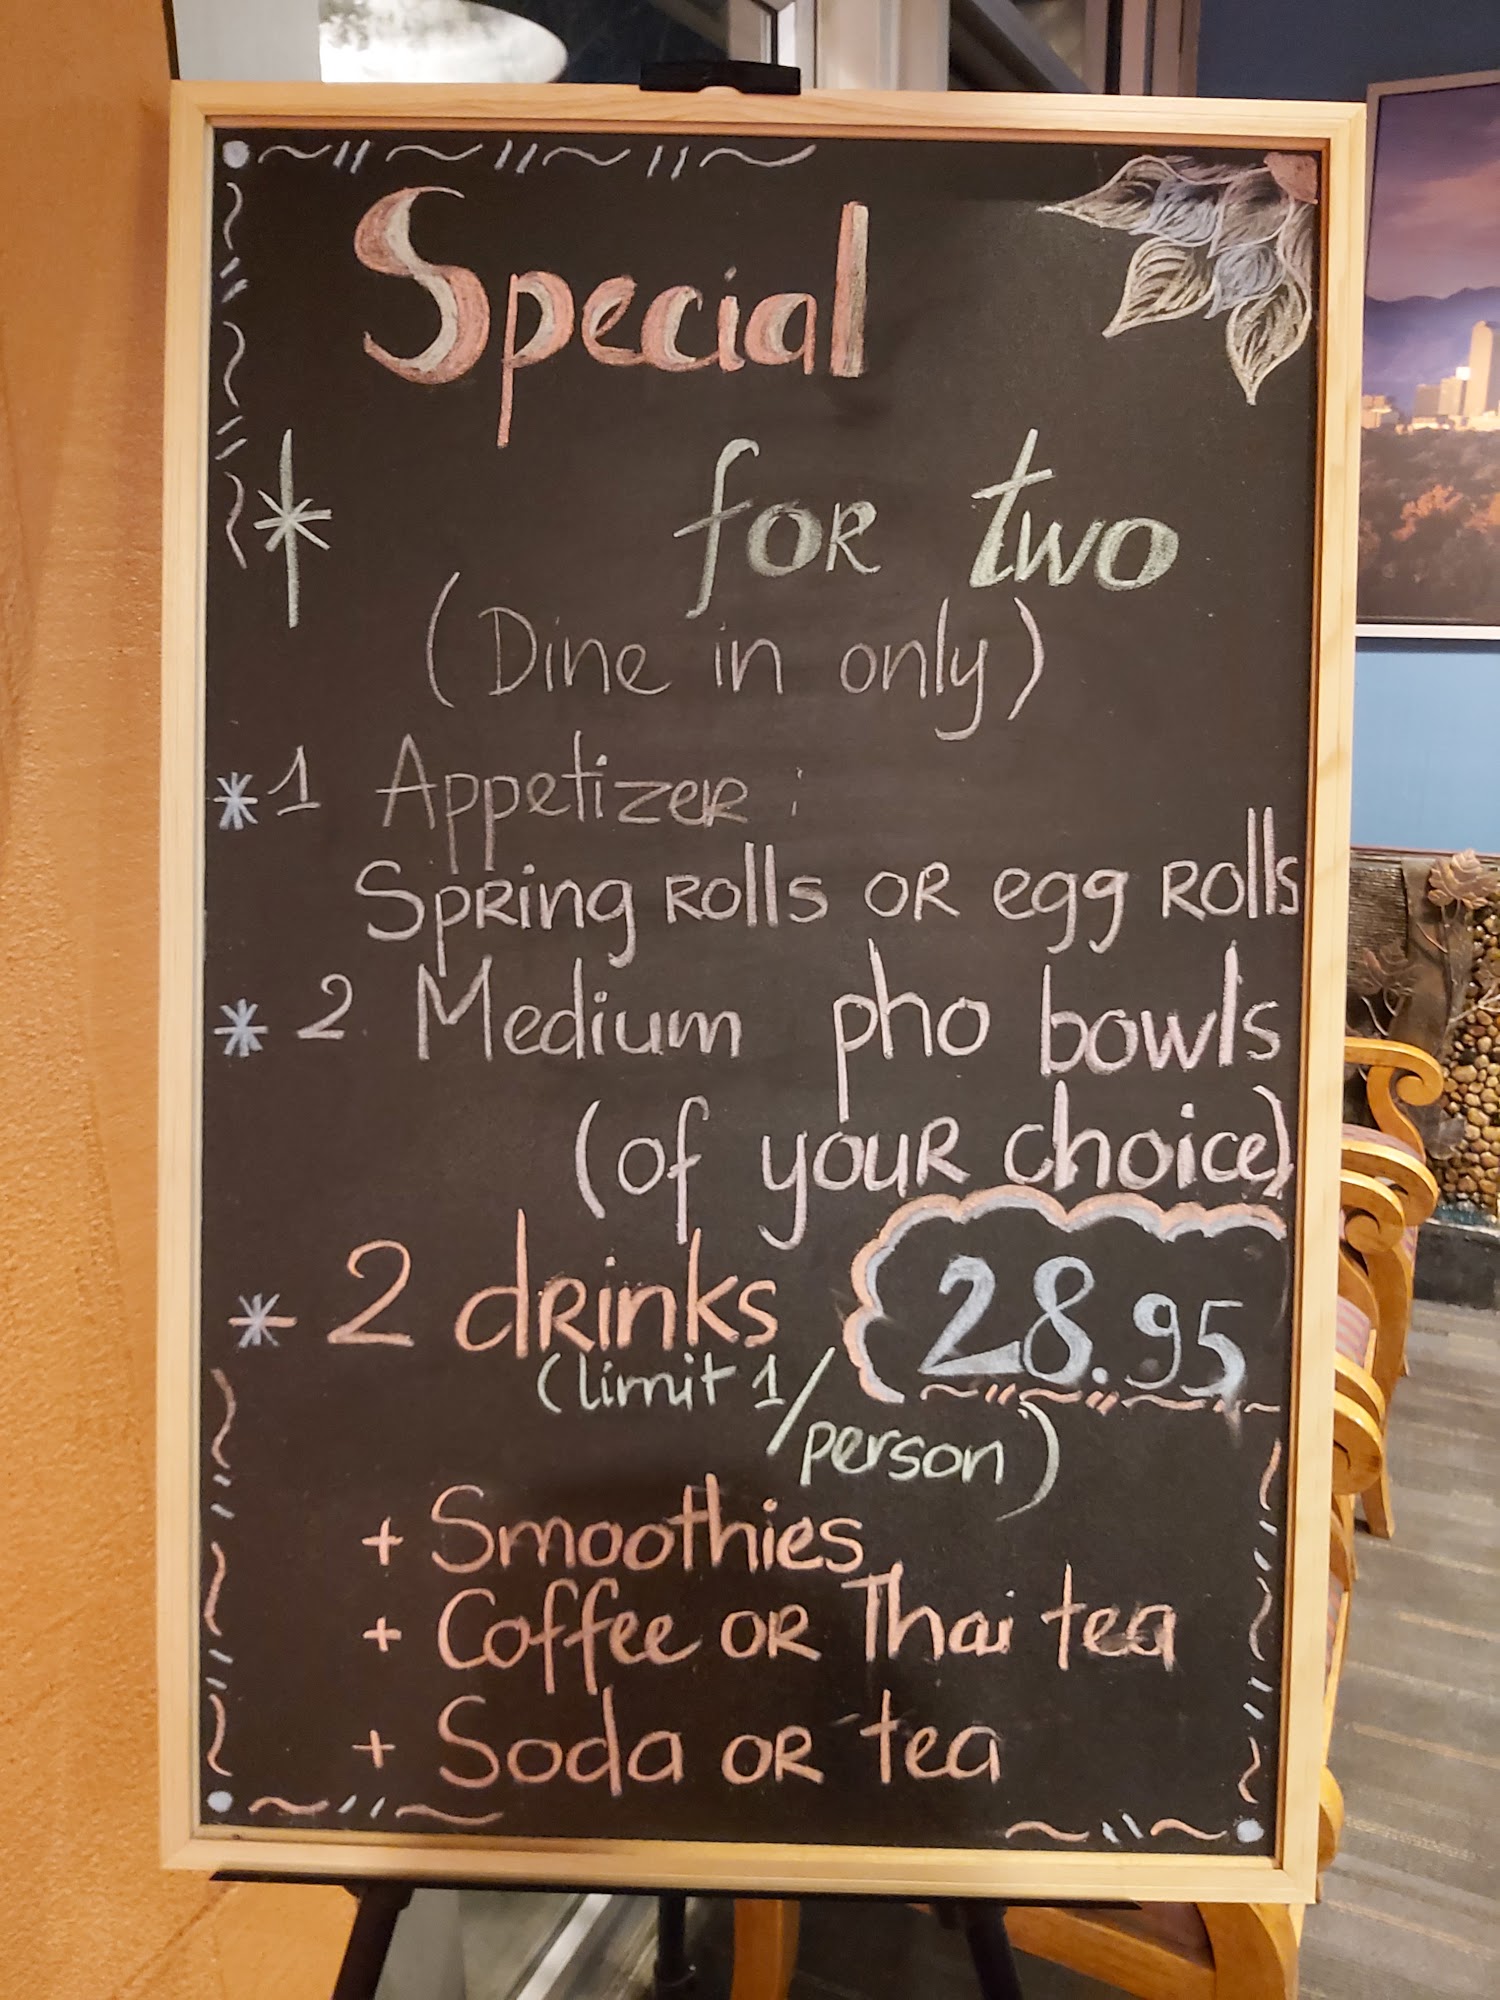 Special
for two
(Dine in only)
* 1 Appetizer :
Spring rolls or egg rolls
* 2 Medium pho bowls
(of your choice)
* 2 drinks
28.95
(limit 1/
person)
+ Smoothies
+ Coffee or Thai tea
+ Soda or tea